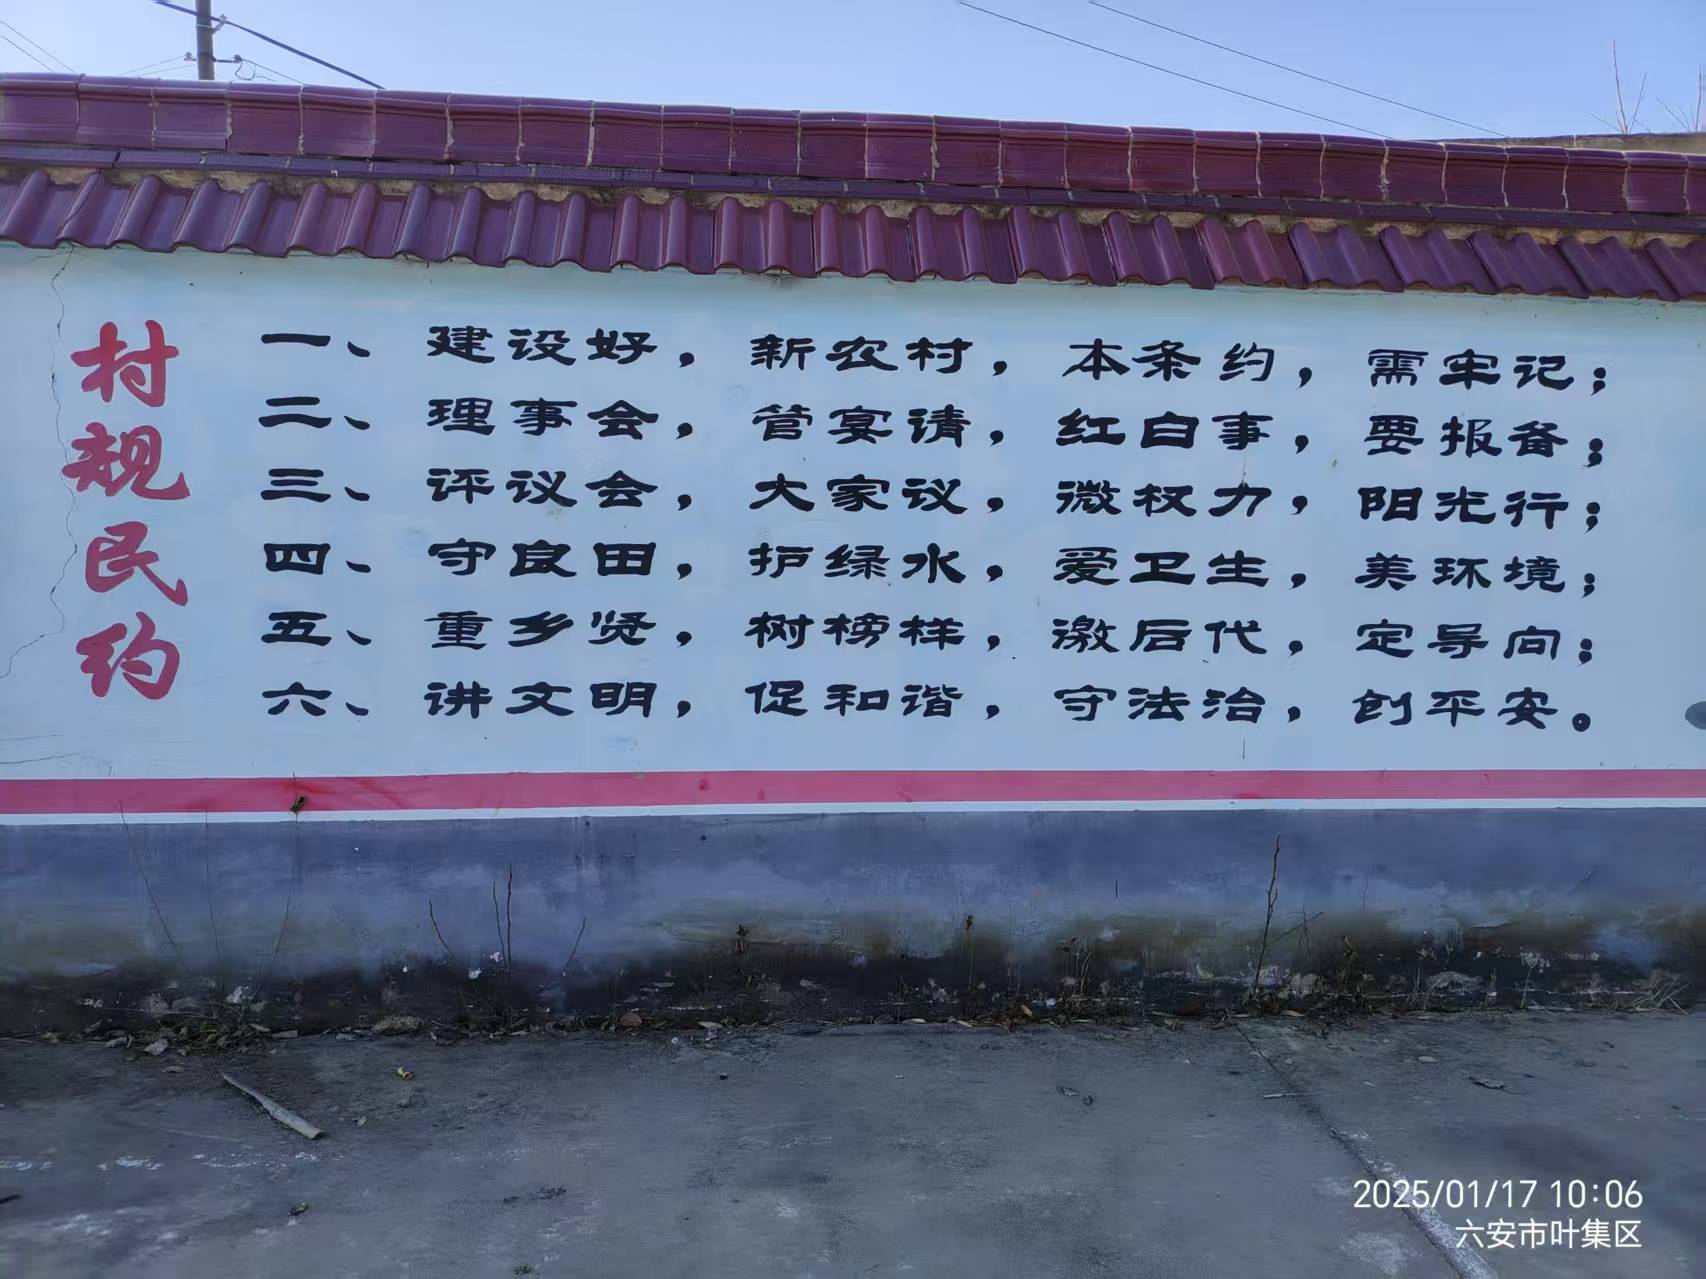 村规民约
一、建设好，新农村，本条约，需牢记；
二、理事会，管宴请，红白事，要报备；
三、评议会，大家议，微权力，阳光行；
四、守良田，护绿水，爱卫生，美环境；
五、重乡贤，树榜样，激后代，定导向；
六、讲文明，促和谐，守法治，创平安。
2025/01/17 10:06
六安市叶集区